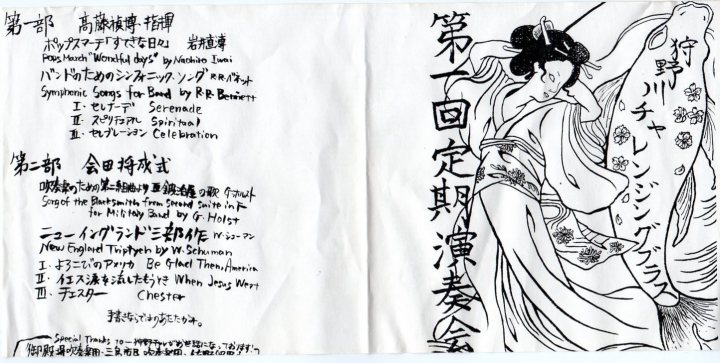 第一部 高藤禎博 指揮
ポップスマーチ「すてきな日々」 岩井直溥
Pops March "Wondful days" by Naohiro Iwai
バンドのためのシンフォニック・ソング R.R.ベネット
Symphonic Songs for Band by R.R.Bennett
I・セレナーデ Serenade
II・スピリチュアル Spiritual
III・セレブレーション Celebration
第二部 会田将成式
吹奏楽のための第二組曲より III 鍛冶屋の歌 G.ホルスト
Song of the Blacksmith from second suite in F
for Military Band by G.Holst
ニューイングランド三部作 W・シューマン
New England Triptyen by W.Schuman
I・よろこびのアメリカ Be Glael Then, America
II・イエス涙を流したもうき When Jesus Wept
III・チェスター Chester
手書きならではのあたたかみ。
Special Thanks to
御殿場吹奏楽団・三島市民吹奏楽団
第一回定期演奏会
狩野川チャレンジングブラス